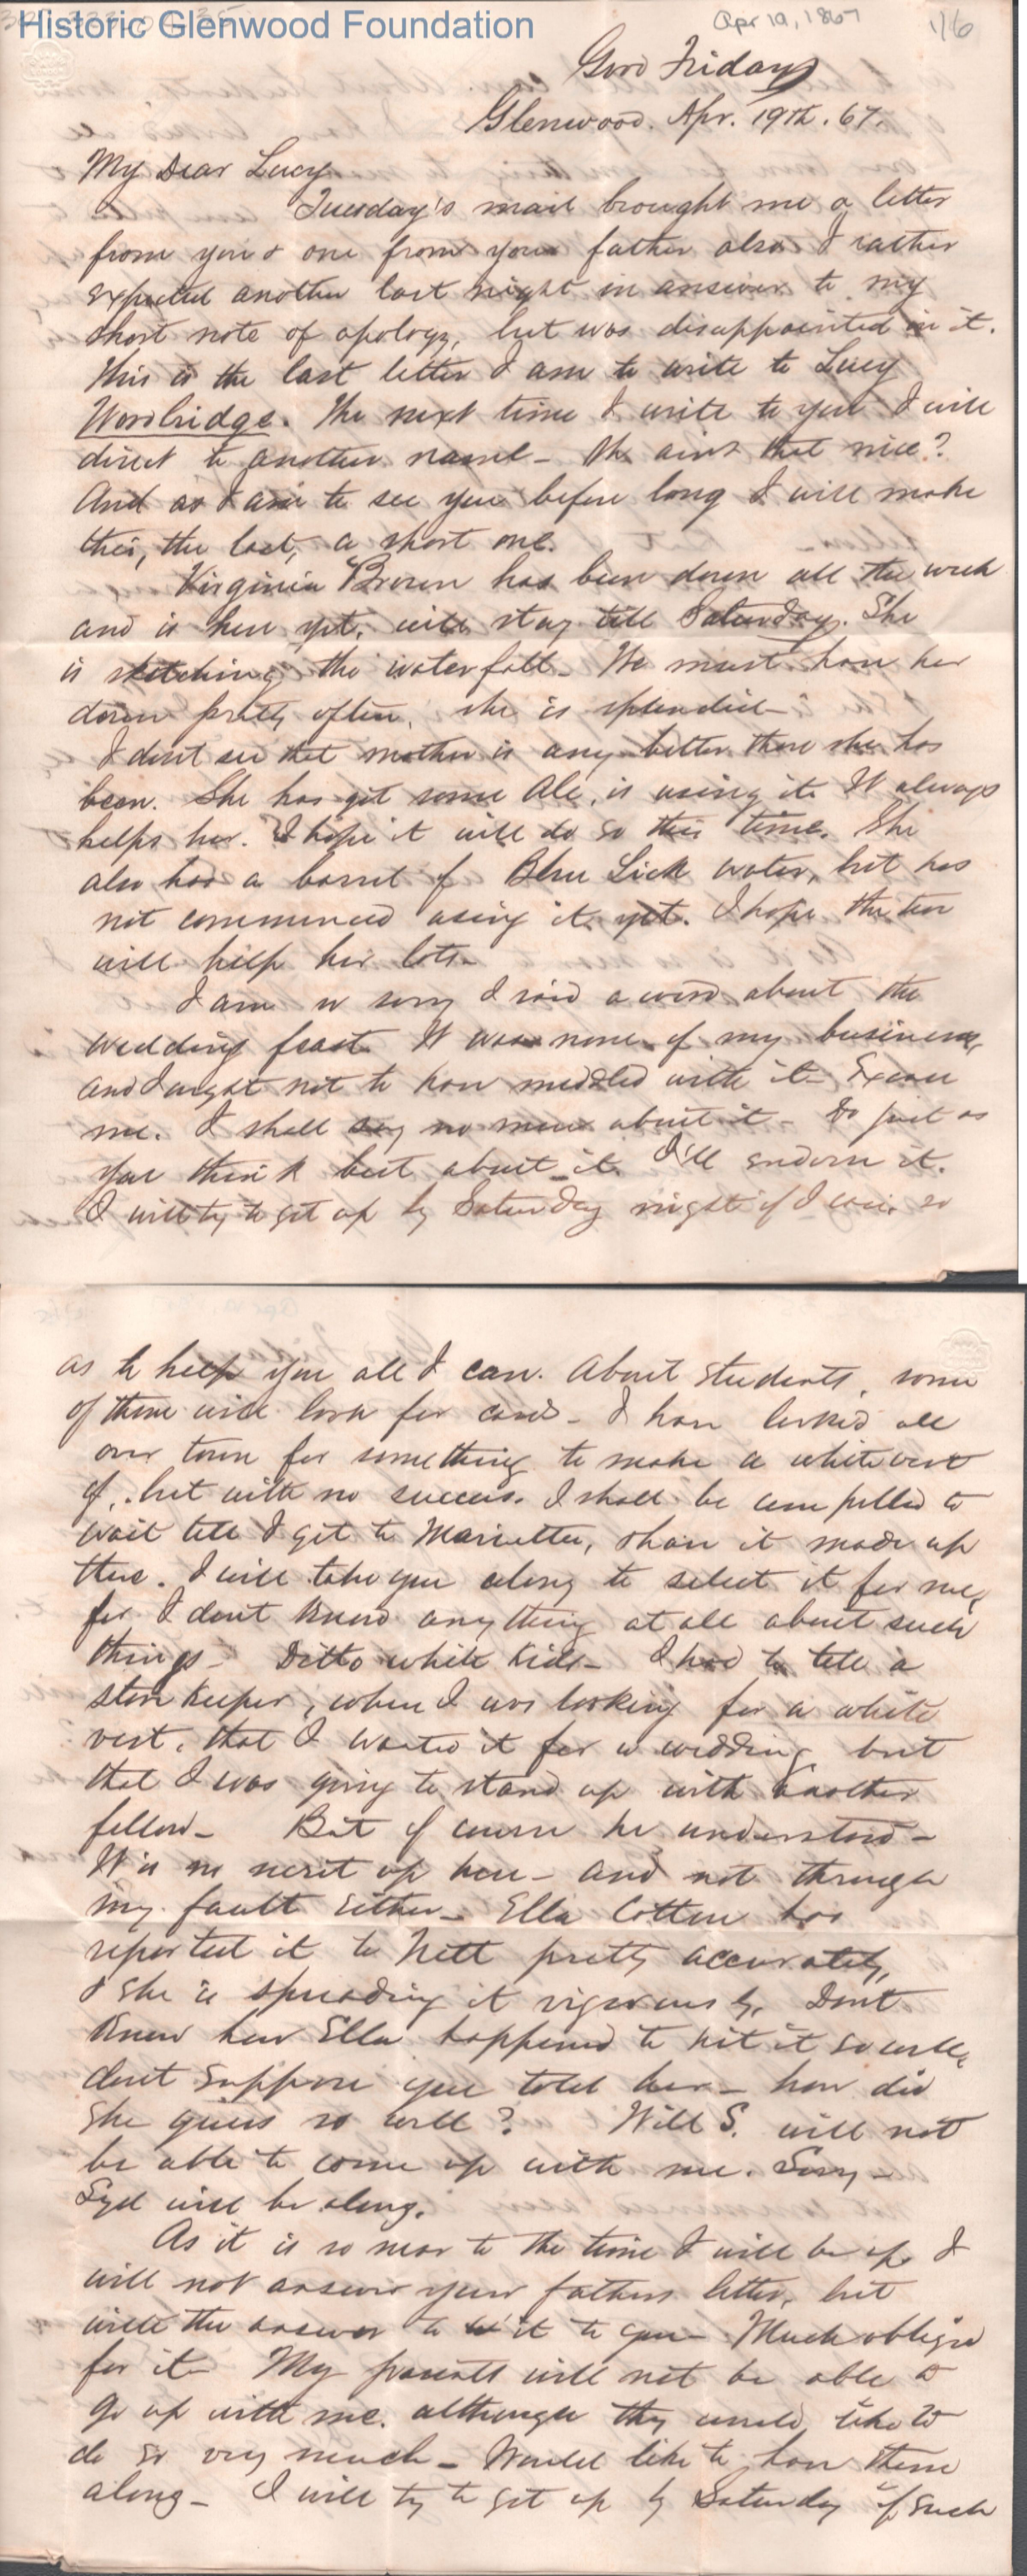 Historic Glenwood Foundation
Apr 19, 1867
116
Good Friday
Glenwood. Apr. 19th. 67.
My Dear Lucy
Tuesday's mail brought me a letter
from you & one from your father also. I rather
expected another last night in answer to my
short note of apology, but was disappointed in it.
This is the last letter I am to write to Lucy
Woodbridge. The next time I write to you I will
direct to another name - Oh aint that nice?
And as I am to see you before long I will make
this, the last, a short one.
Virginia Brown has been down all the week
and is here yet. will stay till Saturday. She
is sketching the waterfall - We must have her
down pretty often, she is splendid -
I dont see that mother is any better than she has
been. She has got some Ale, is using it. It always
helps her. I hope it will do so this time. She
also has a barrel of Blue Lick water, but has
not commenced using it yet. I hope the two
will help her lots -
I am so sorry I said a word about the
wedding feast. It was none of my business,
and I ought not to have meddled with it - Excuse
me. I shall say no more about it - Do just as
you think best about it. I'll endorse it.
I will try to get up by Saturday night if I can. so
as to help you all I can. About students, some
of them will look for cards - I have looked all
over town for something to make a white vest
of, but with no success. I shall be compelled to
wait till I get to Marietta, & have it made up
there. I will take you along to select it for me,
for I dont know anything at all about such
things - Ditto white kids - I had to tell a
store keeper, when I was looking for a white
vest, that I wanted it for a wedding but
that I was going to stand up with another
fellow - But of course he understood -
It is no secret up here - and not through
my fault either - Ella Cotton has
reported it to Nett pretty accurately,
& she is spreading it vigorously. Dont
know how Ella happened to hit it so well,
dont suppose you told her - how did
she guess so well? Will S. will not
be able to come up with me. Sorry -
Syd will be along.
As it is so near to the time I will be up I
will not answer your fathers letter, but
will the answer to it to you - Much obliged
for it - My parents will not be able to
go up with me. although they would like to
do so very much - Would like to have them
along - I will try to get up by Saturday if such